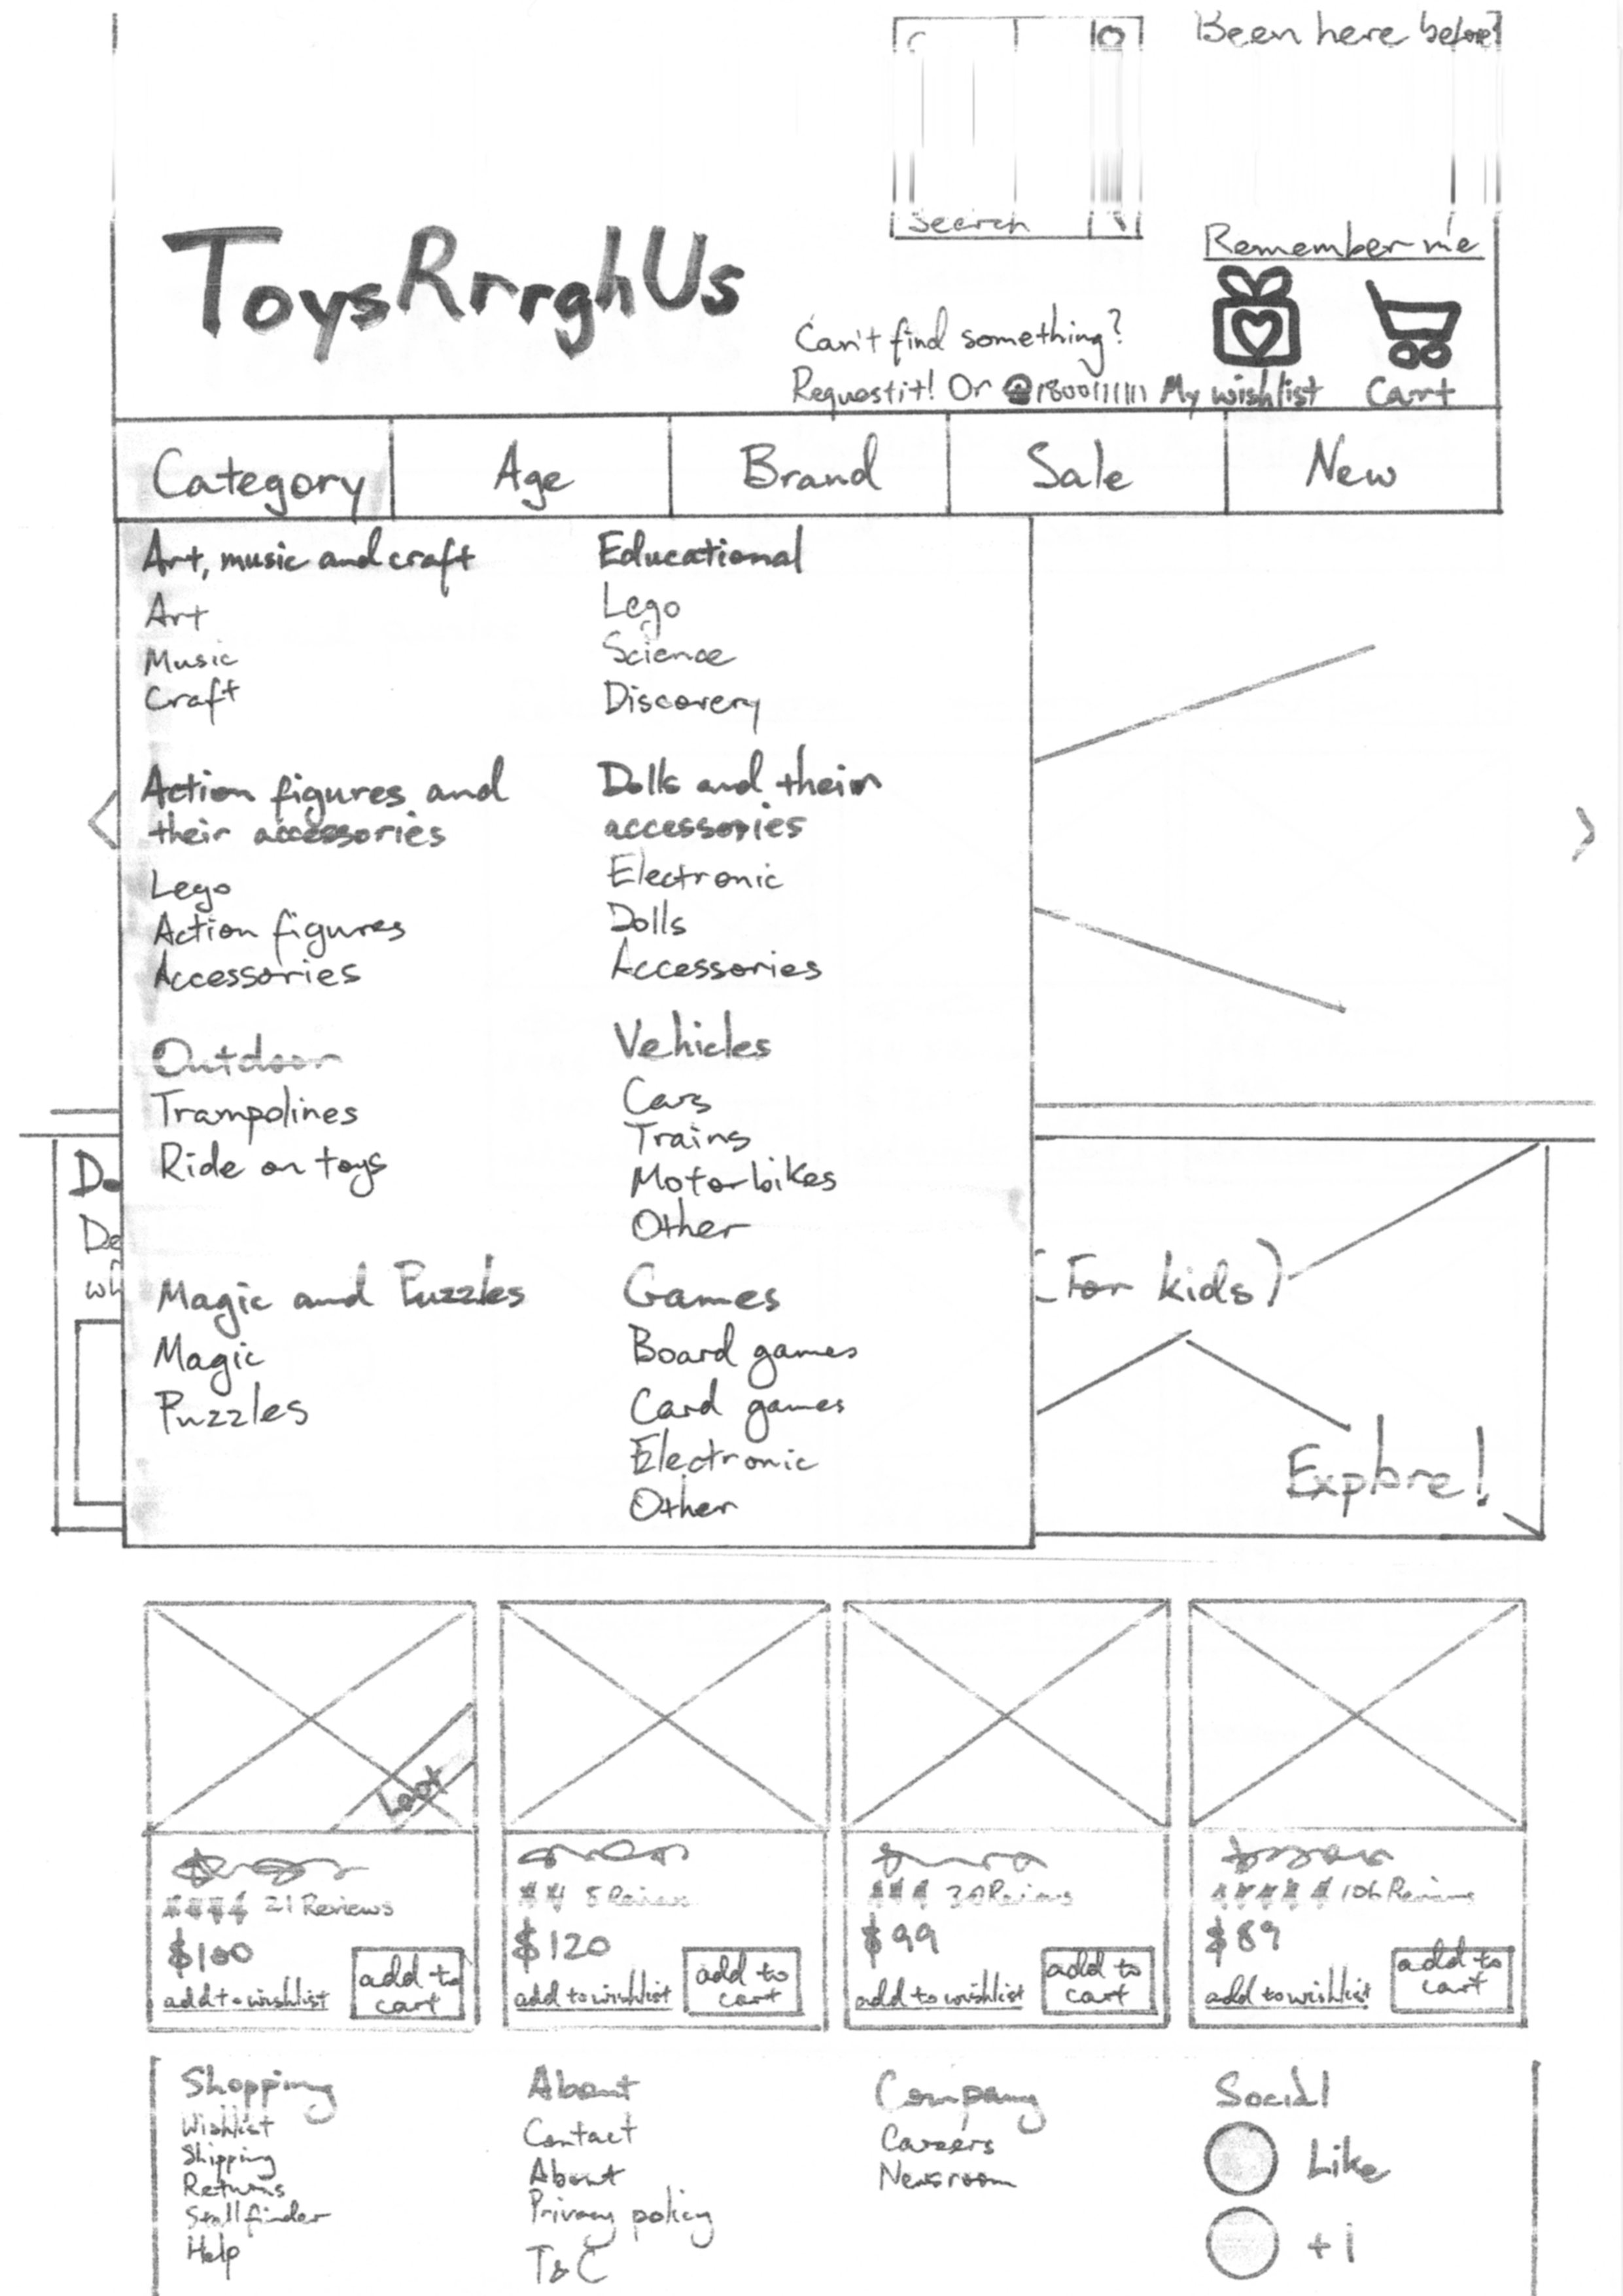 Been here before?
Search
Remember me
ToysRrrghUs
Can't find something?
Request it! Or 1800111111
My wishlist
Cart
Category
Age
Brand
Sale
New
Art, music and craft
Art
Music
Craft
Action figures and
their accessories
Lego
Action figures
Accessories
Outdoor
Trampolines
Ride on toys
Magic and Puzzles
Magic
Puzzles
Educational
Lego
Science
Discovery
Dolls and their
accessories
Electronic
Dolls
Accessories
Vehicles
Cars
Trains
Motorbikes
Other
Games
Board games
Card games
Electronic
Other
Do
De
wh
(For kids)
Explore!
21 Reviews
$100
add to wishlist
add to
cart
$120
add to wishlist
add to
cart
$99
add to wishlist
add to
cart
$89
add to wishlist
add to
cart
Shopping
Wishlist
Shipping
Returns
Help
About
Contact
About
Privacy policy
T&C
Company
Careers
Newsroom
Social
Like
+1